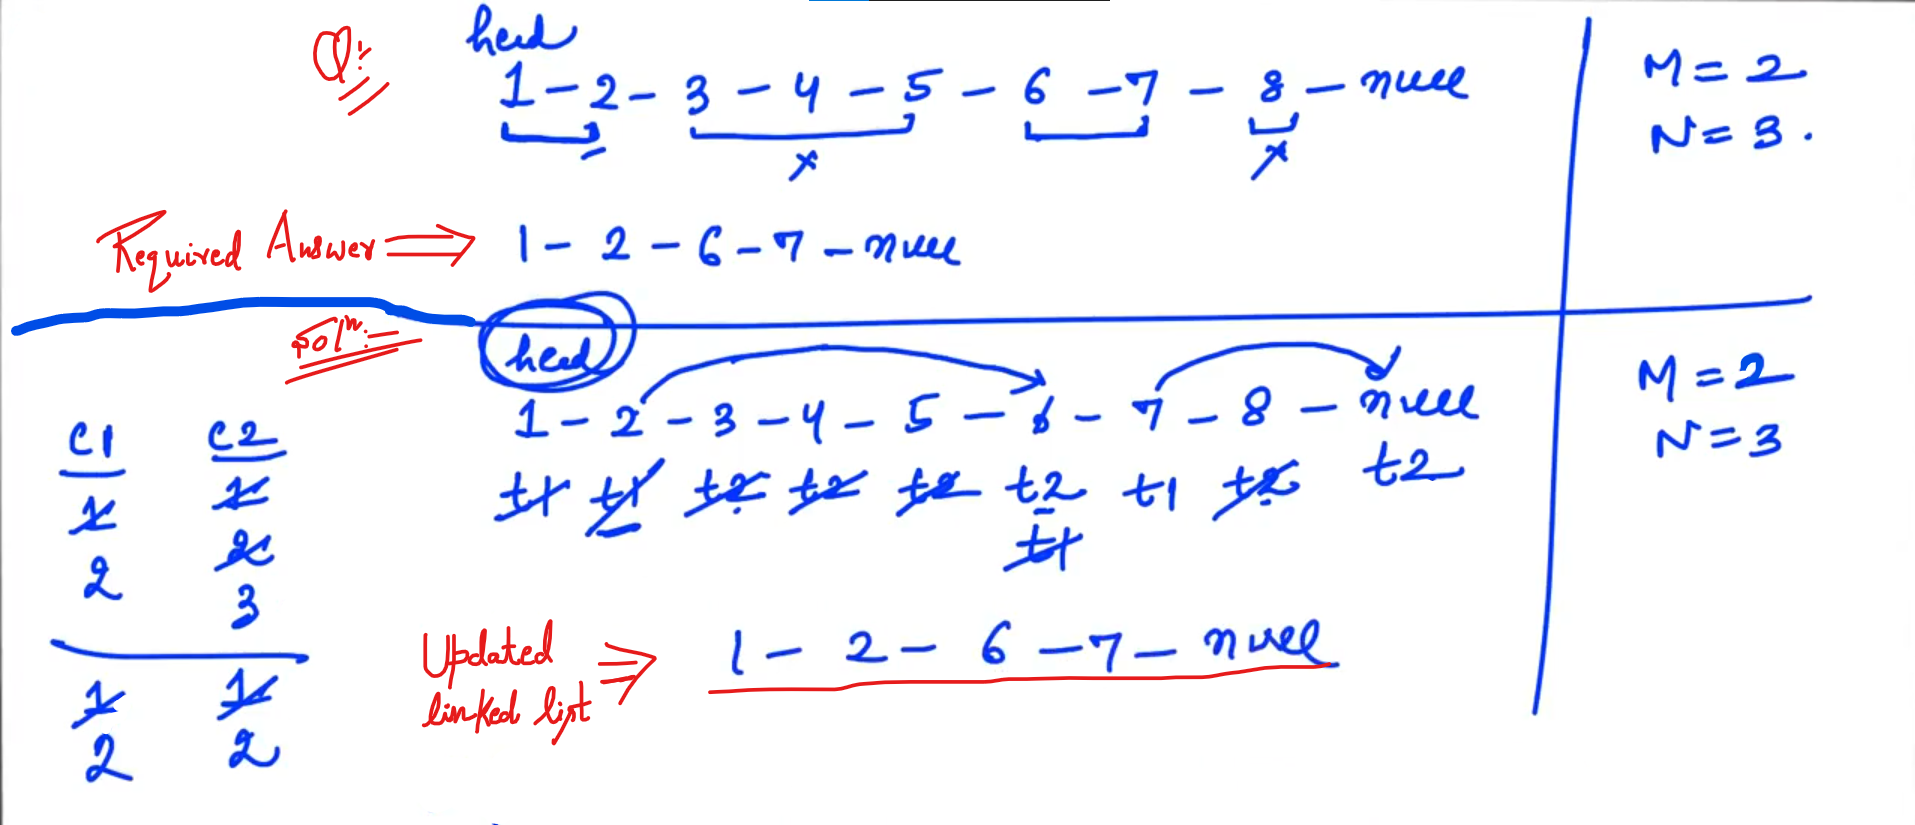 Q:
head
1 - 2 - 3 - 4 - 5 - 6 - 7 - 8 - null
x x
M = 2
N = 3.
Required Answer ⇒ 1 - 2 - 6 - 7 - null
Solⁿ:-
head
1 - 2 - 3 - 4 - 5 - 6 - 7 - 8 - null
t1 t1 t2 t2 t2 t2 t1 t2 t2
t1
M = 2
N = 3
C1 C2
1 1
2 2
3
1 1
2 2
Updated
linked list ⇒ 1 - 2 - 6 - 7 - null